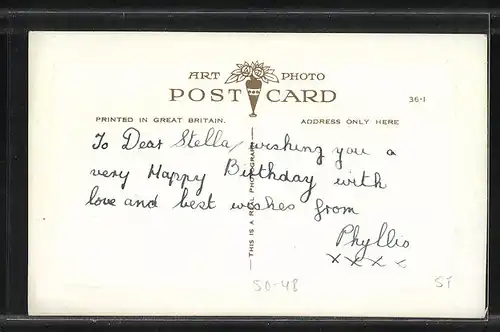 ART PHOTO
POST CARD
36-1
PRINTED IN GREAT BRITAIN. ADDRESS ONLY HERE
THIS IS A REAL PHOTOGRAPH
To Dear Stella, wishing you a
very Happy Birthday with
love and best wishes from
Phyllis
x x x x
50-48